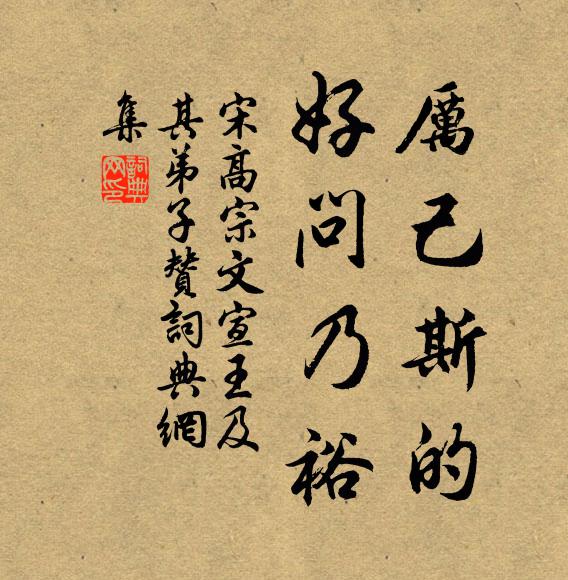 厲己斯的
好問乃裕
宋高宗文宣王及
其弟子贊詞典網
集
詞典网印